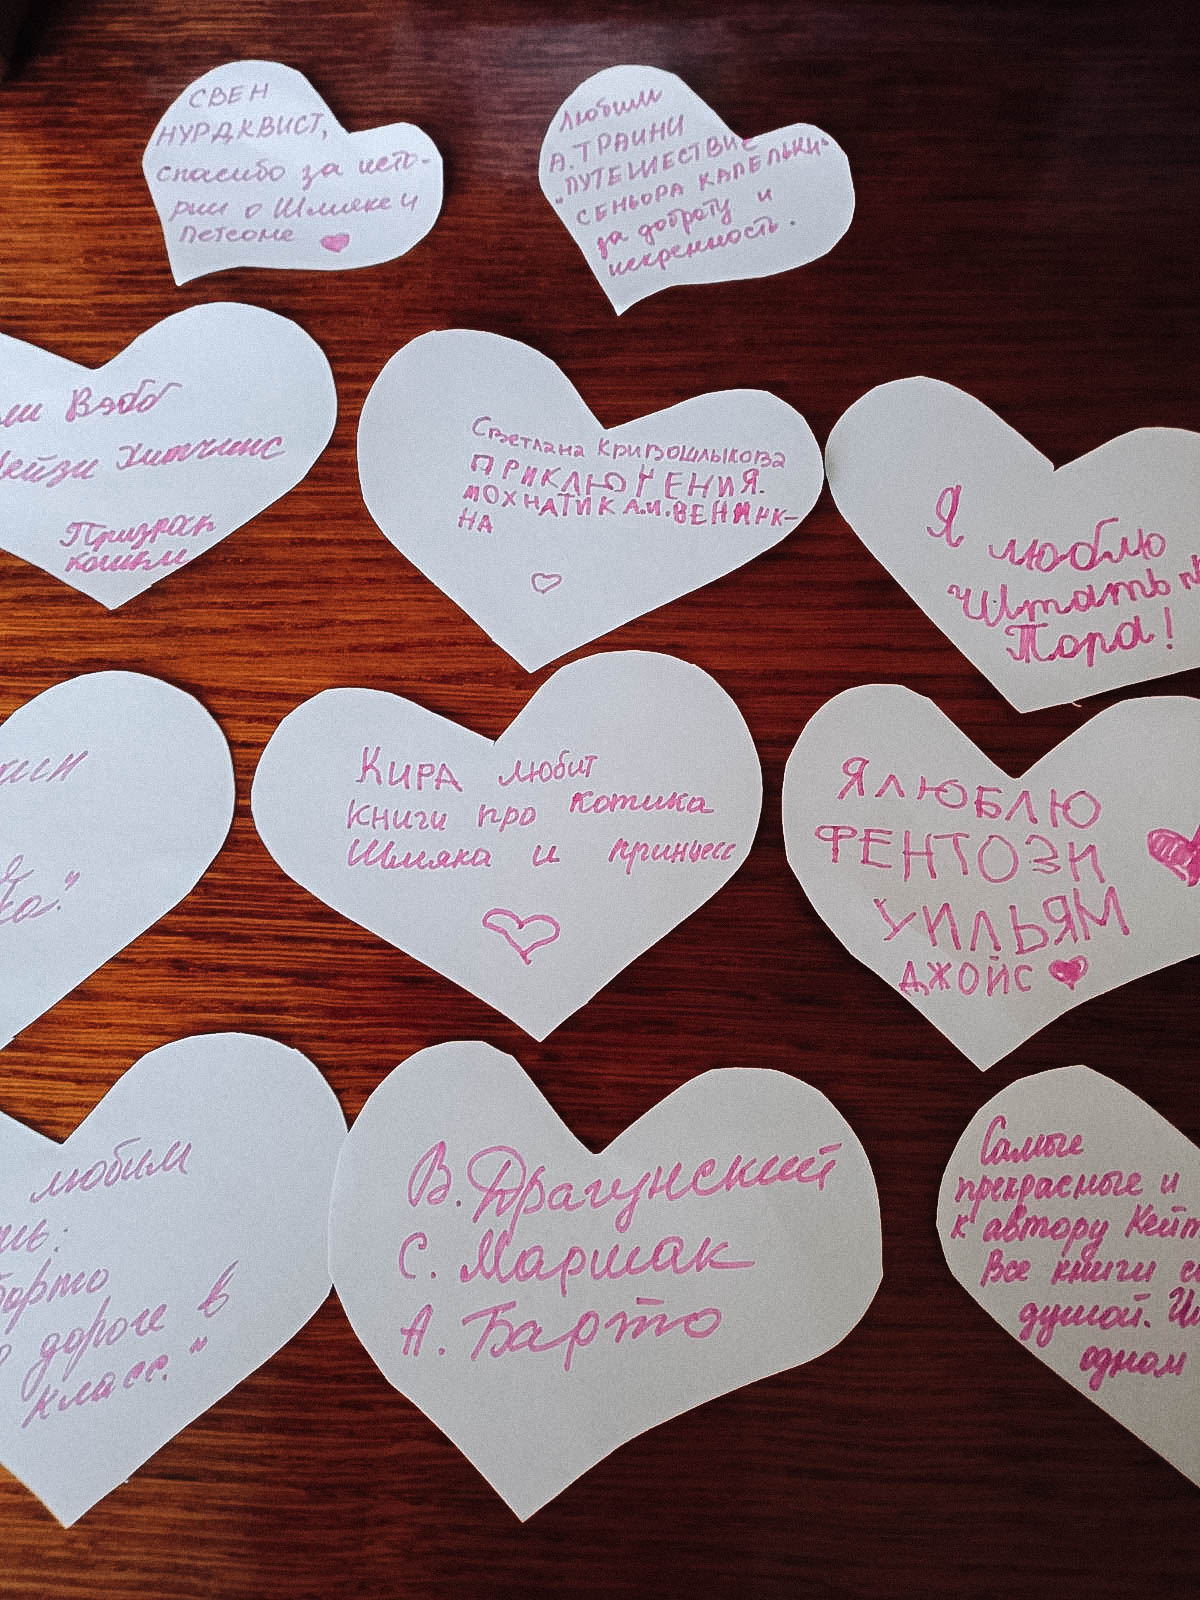 СВЕН
НУРДКВИСТ,
спасибо за исто-
рии о Шмяке и
Петсоне
Любим
А. ТРАИНИ
"ПУТЕШЕСТВИЕ
СЕНЬОРА КАПЕЛЬКИ"
за доброту и
искренность.
ли Вэбб
ейзи Хитчинс
Призрак
кошки
Светлана Кривошлыкова
ПРИКЛЮЧЕНИЯ.
МОХНАТИКА.И.ВЕНИНК-
НА
Я люблю
Читать
Пора!
Кира любит
книги про котика
Шмяка и принцесс
Я ЛЮБЛЮ
ФЕНТОЗИ
УИЛЬЯМ
ДЖОЙС
любим
барто
дороге в
класс."
В. Драгунский
С. Маршак
А. Барто
Самые
прекрасные и
к автору Кейт
Все книги с
душой.
одном